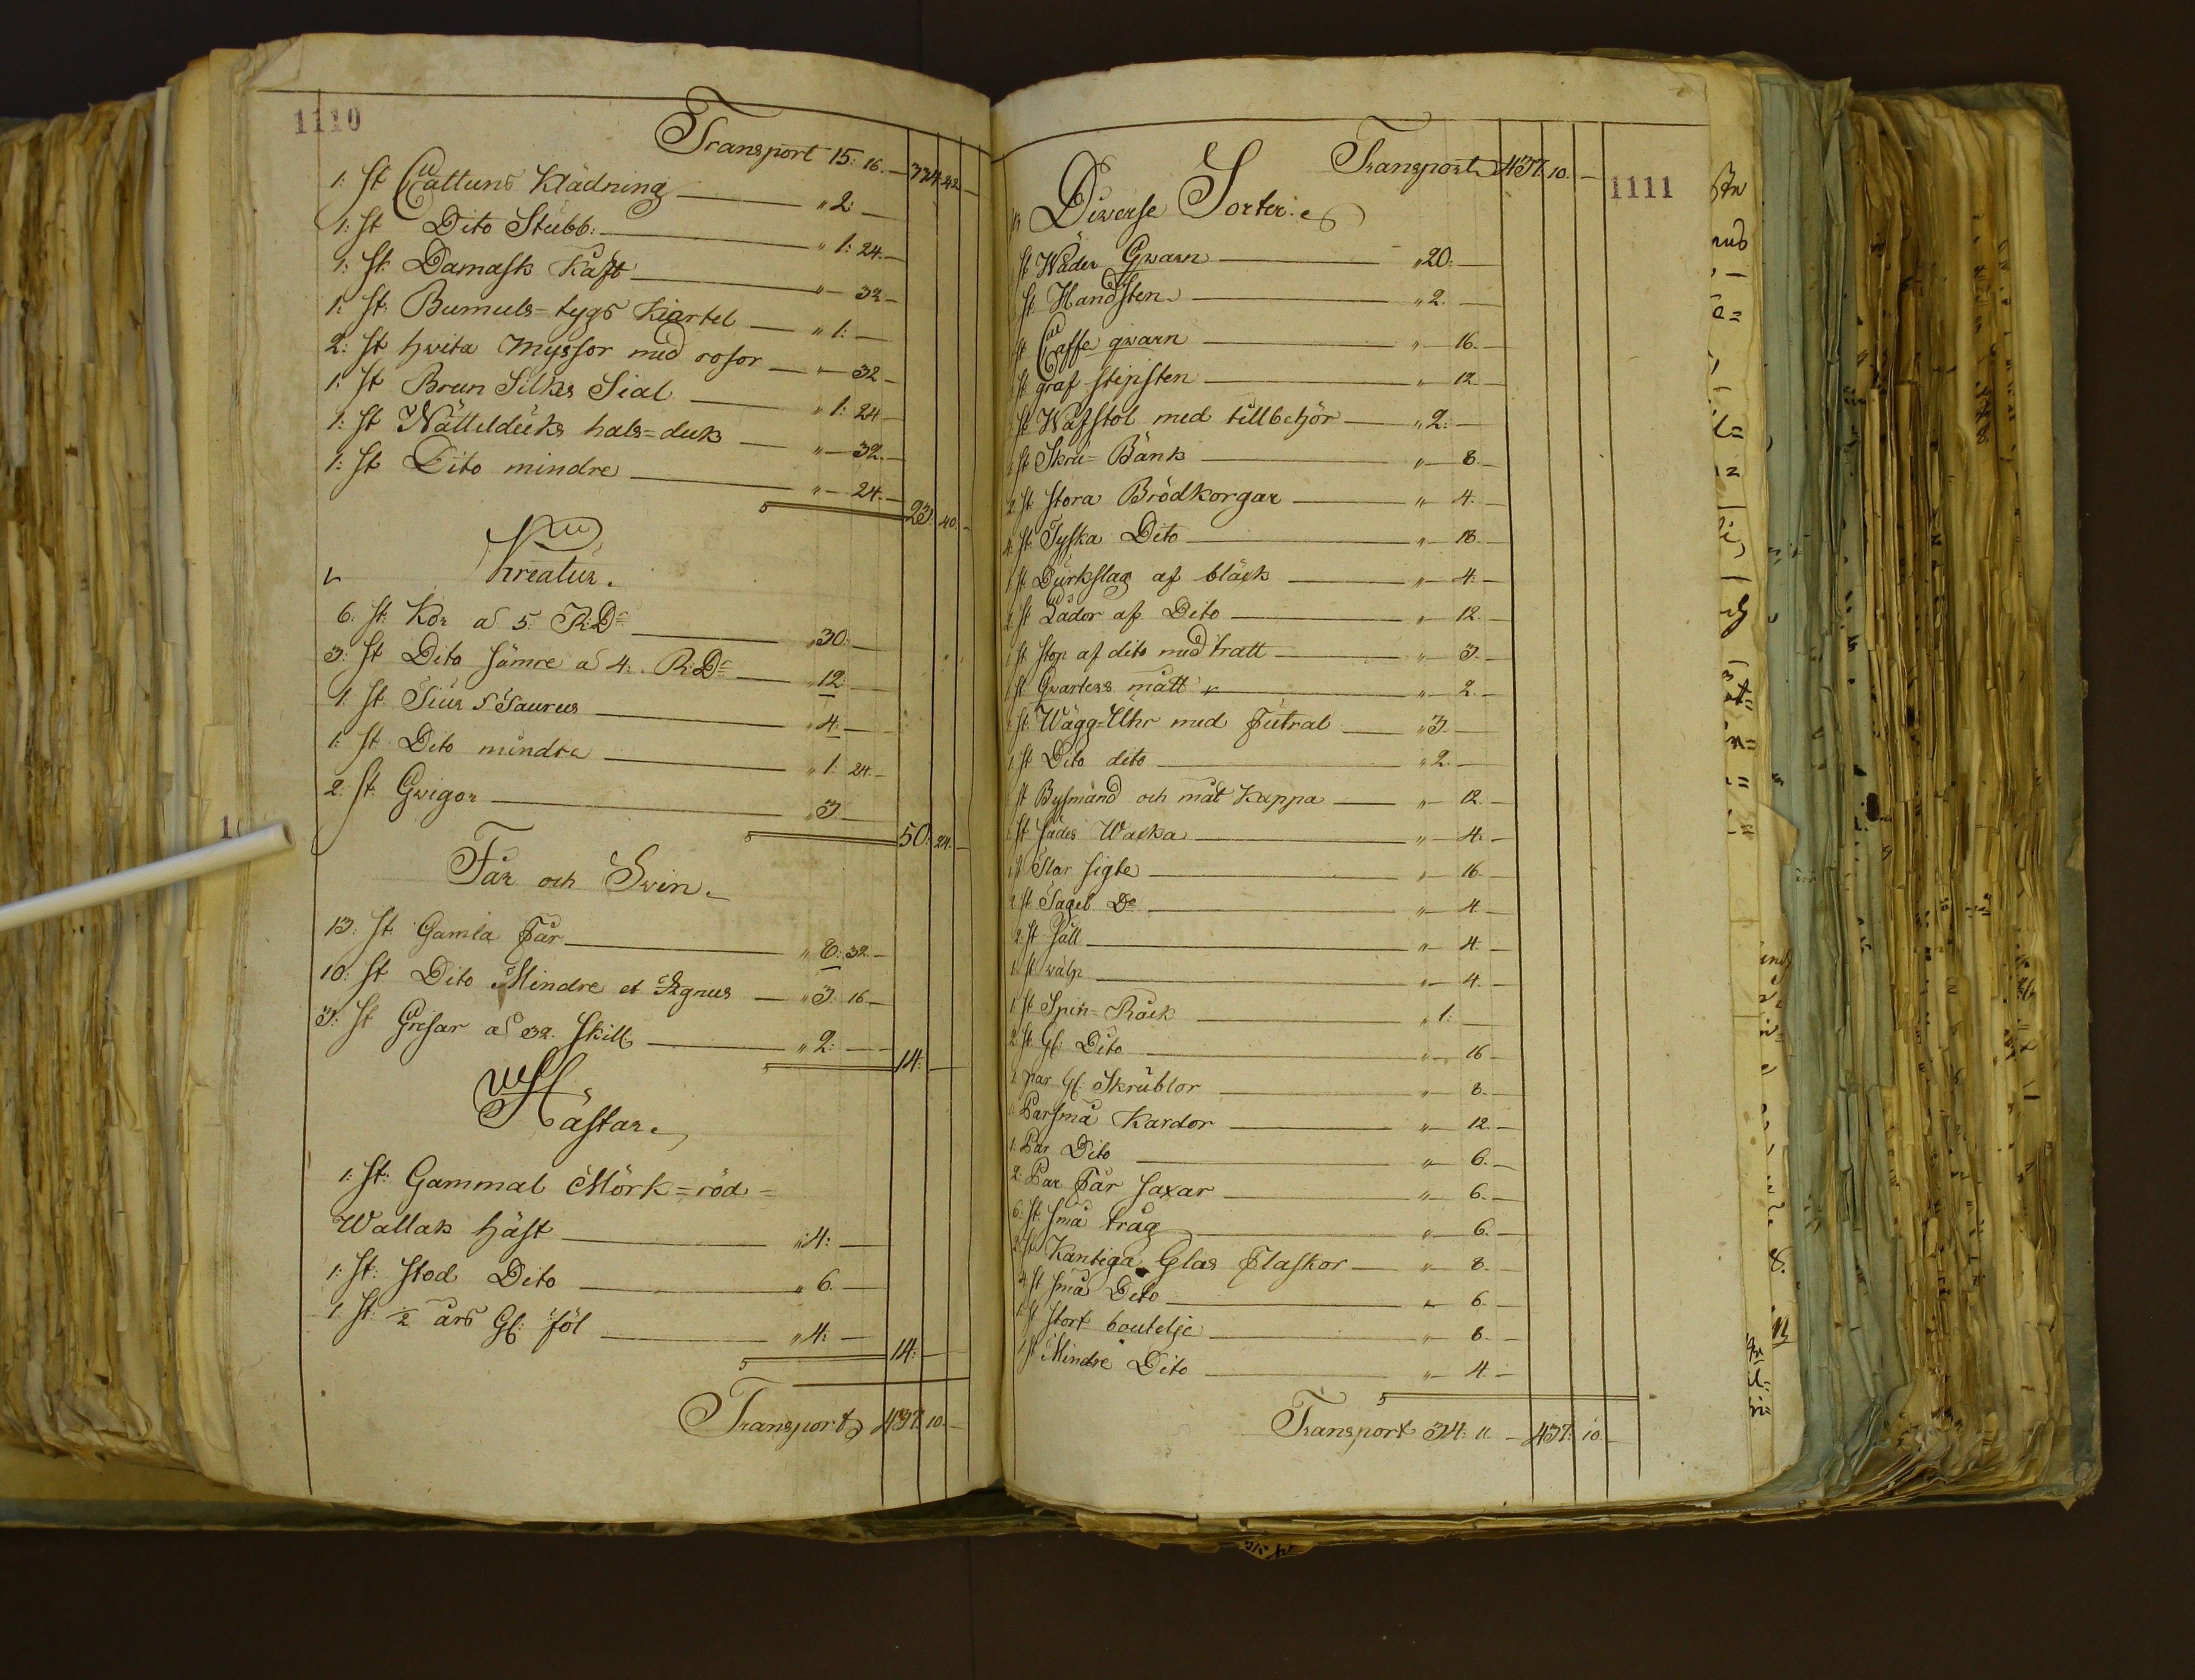 1110
Transport 15: 16. — 334. 42 —
1: st Cattuns Klädning — " 2: —
1: st Dito Stubb: — " 1: 24. —
1: st Damask Kaft — " — 32 —
1: st Bumuls=tygs Kiartel — " 1: —
2: st hwita Myssor med rosor — " — 32 —
1: st Brun Silkes Sial — " 1: 24 —
1: st Nätteldüks hals=duk — " — 32. —
1: st Dito mindre — " — 24. — 23. 40. —
Kreatur.
6: st Kor a 5: R:D: — " 30: —
3: st Dito sämre a 4: R:D: — " 12: —
1: st Tiur Taurus — " 4: —
1: st Dito mindre — " 1: 24. —
2: st Qwigor — " 3 — 50: 24. —
Får och Swin.
13: st Gamla Får — " 8: 32. —
10: st Dito Mindre et Agnus — " 3: 16 —
3: st Grisar a 32. skill — " 2: — 14: —
Hästar.
1: st: Gammal Mörk=röd =
Wallak häst — " 4: —
1: st: stod Dito — " 6. —
1: st: ½ års Gl: föl — " 4: — 14: —
Transport 437. 10. —
1111
Transport 437. 10. —
Diwerse Sorter.
st Wäder Qwarn — " 20: —
st Handsten — " 2. —
st Caffe qwarn — " — 16. —
st graf slipsten — " — 12 —
st Wäfstol med tillbehör — " 2: —
1 st Skru=Bänk — " — 8. —
2 st stora Brödkorgar — " — 4. —
4. st Tyska Dito — " — 18. —
1 st Durkslag af bläck — " — 4: —
st Lådor af Dito — " — 12. —
1 st stop af dito med tratt — " — 3. —
1 st Qwarters mått — " — 2. —
1 st: Wägg=Uhr med Futral — " 3. —
1 st Dito dito — " 2. —
st Bysmand och mat Kappa — " — 12. —
1 st sädes Wacka — " — 4: —
1 st Mar sigte — " — 16. —
1 st Tagel Do — " — 4. —
2 st såll — " — 4. —
1 st — " — 4. —
1 st Spin=Rock — " 1: —
2 st Gl: Dito — " — 16 —
1 par Gl: Skrublor — " — 8. —
Par små Kardor — " — 12. —
1. Par Dito — " — 6. —
2: Par Får saxar — " — 6. —
6: st små tråg — " — 6. —
2 st Kantiga Glas Flaskor — " — 8. —
4 st små Dito — " — 6. —
1 st stort boutelje — " — 8. —
1 st Mindre Dito — " — 4. —
Transport 34: 11. — 437: 10. —